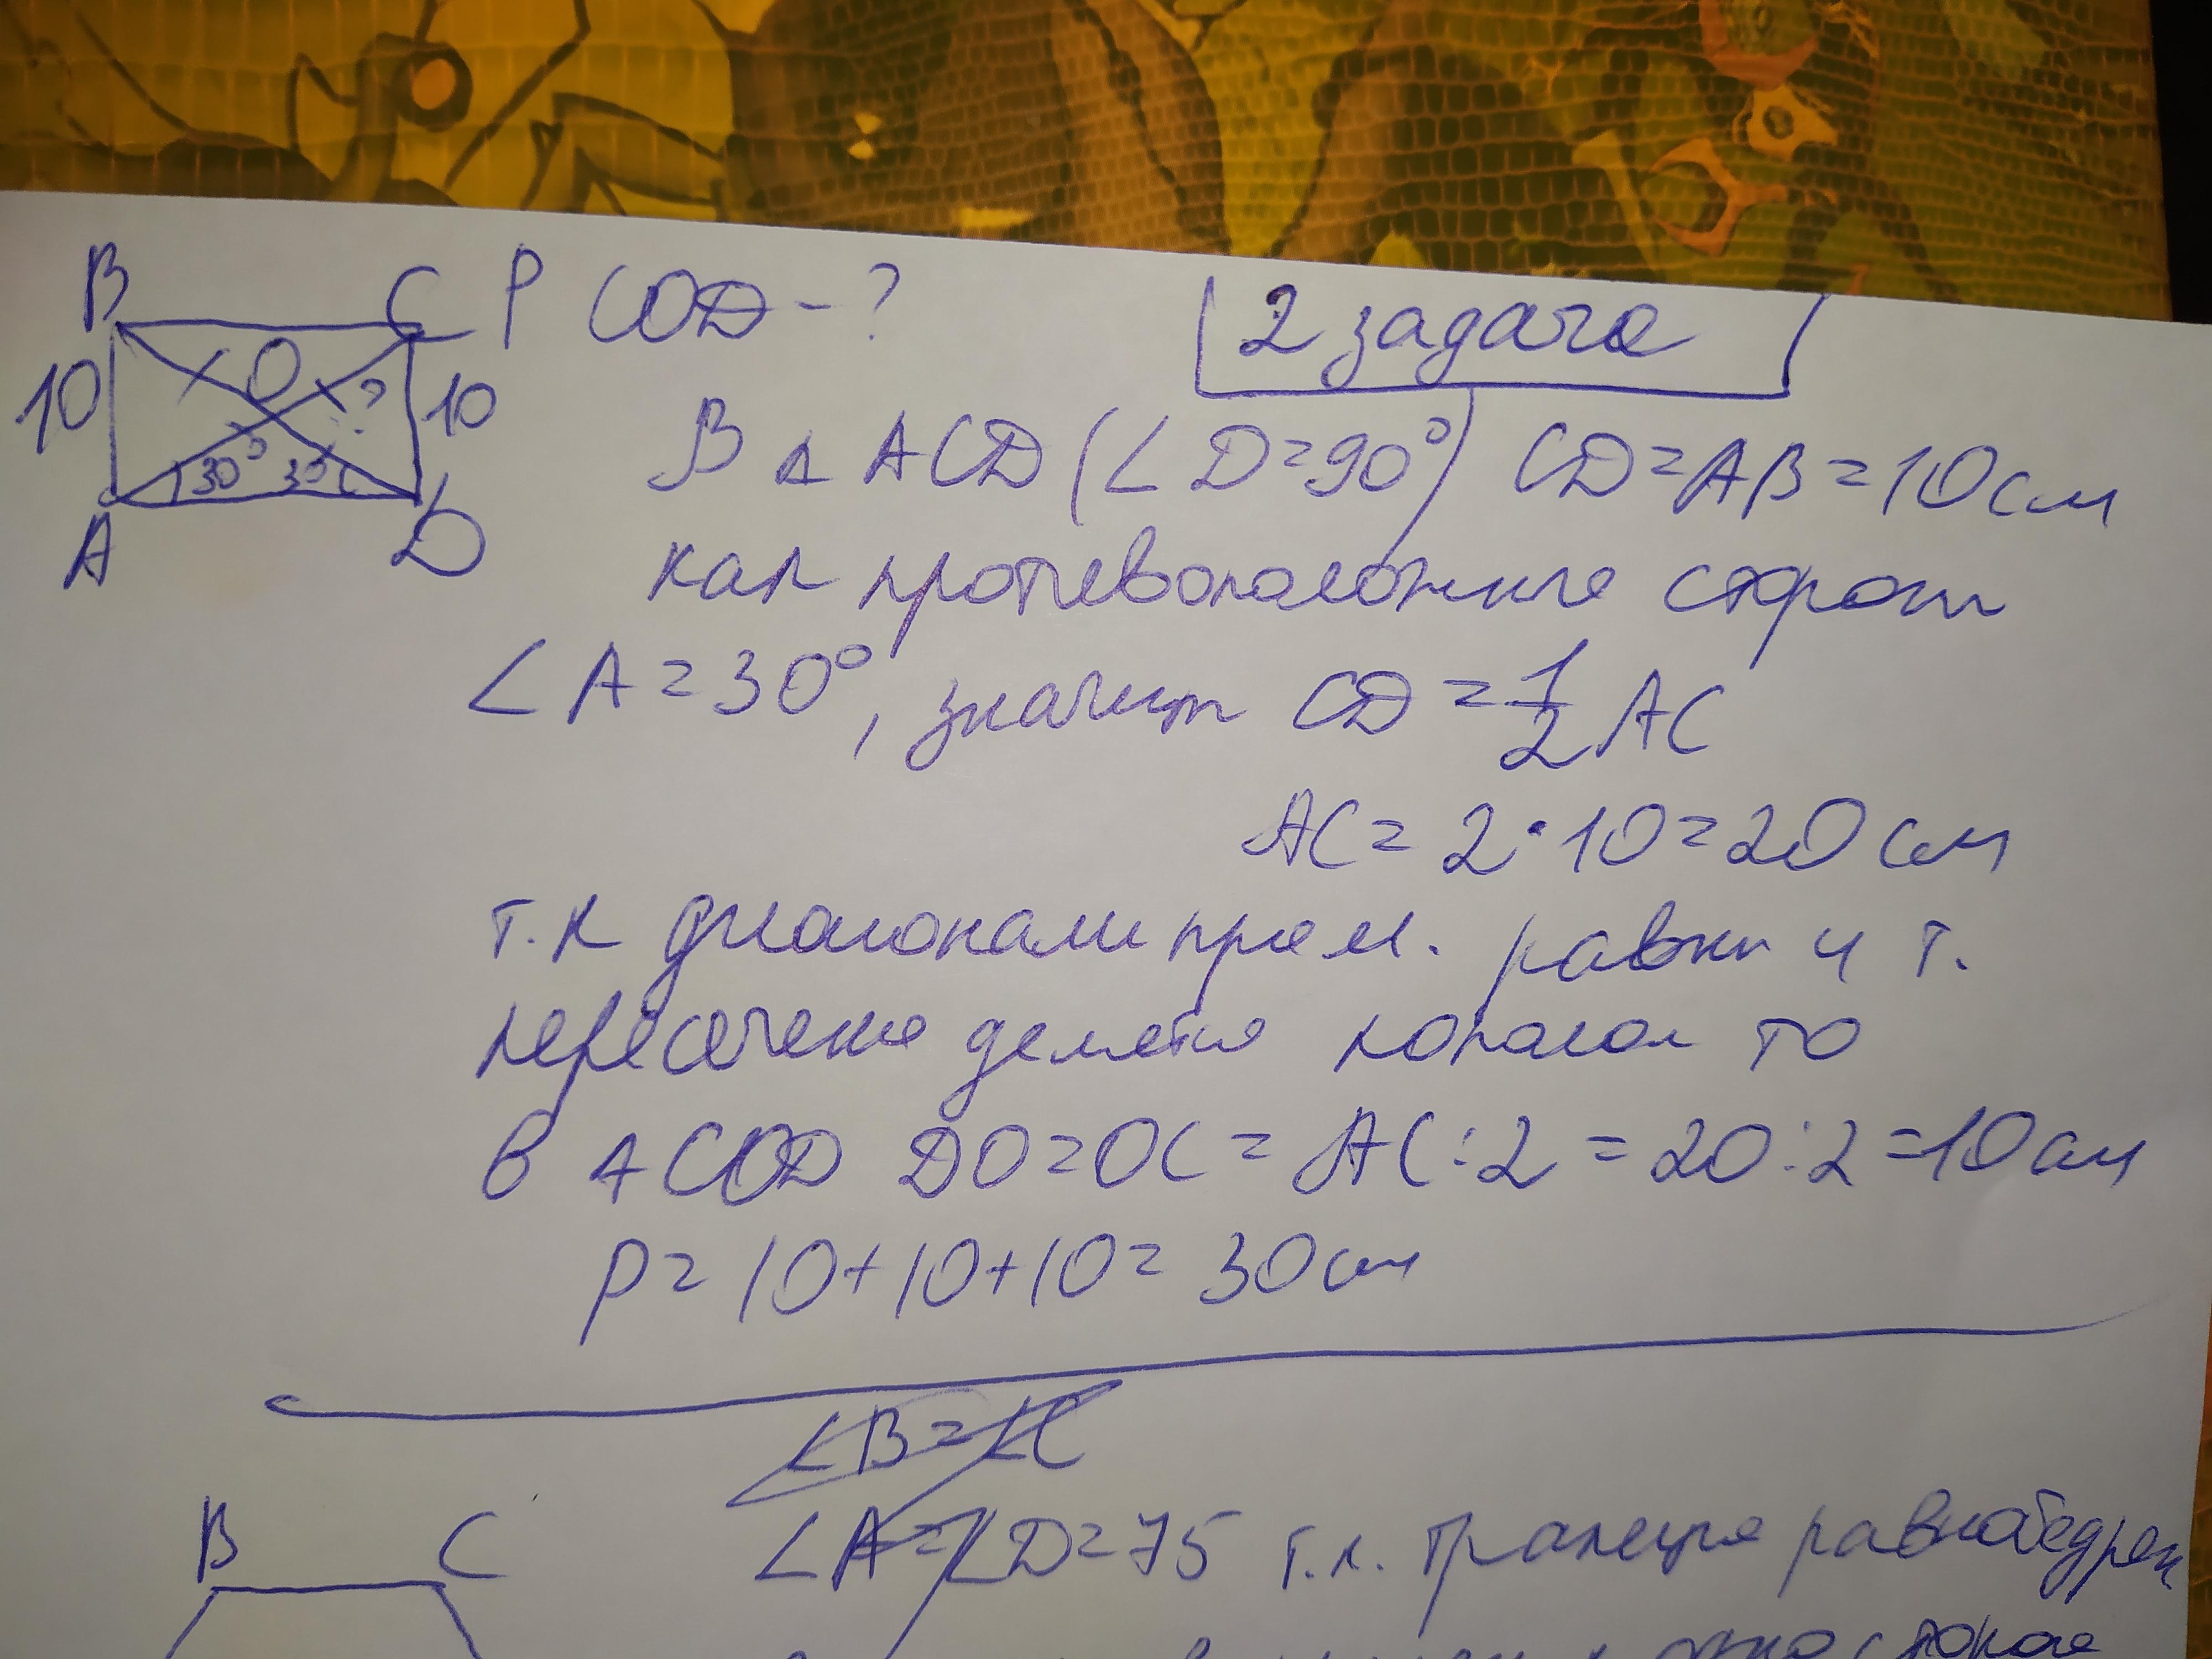 B C P COD - ?
2 задача
10 O ? 10
30° 30
A D
В △ ACD (∠ D=90°) CD=AB=10см
как противоположные сторон
∠ A=30°, значит CD = 1/2 AC
AC = 2·10=20 см
т.к диагонали прям. равны и т.
пересечения делятся пополам то
в △ COD DO=OC = AC:2 = 20:2=10см
P= 10+10+10= 30см
∠B=∠C
∠A=∠D=75 т.к. трапеция равнобедрен
B C